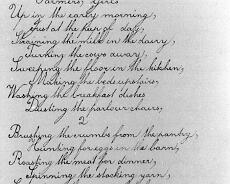 Farmers' Girls
Up in the early morning,
Just at the peep of day,
Straining the milk in the dairy,
Turning the cows away,
Sweeping the floor in the kitchen,
Making the beds upstairs,
Washing the breakfast dishes
Dusting the parlour chairs,
2
Brushing the crumbs from the pantry,
Hunting for eggs in the barn,
Roasting the meat for dinner,
Spinning the stocking yarn,